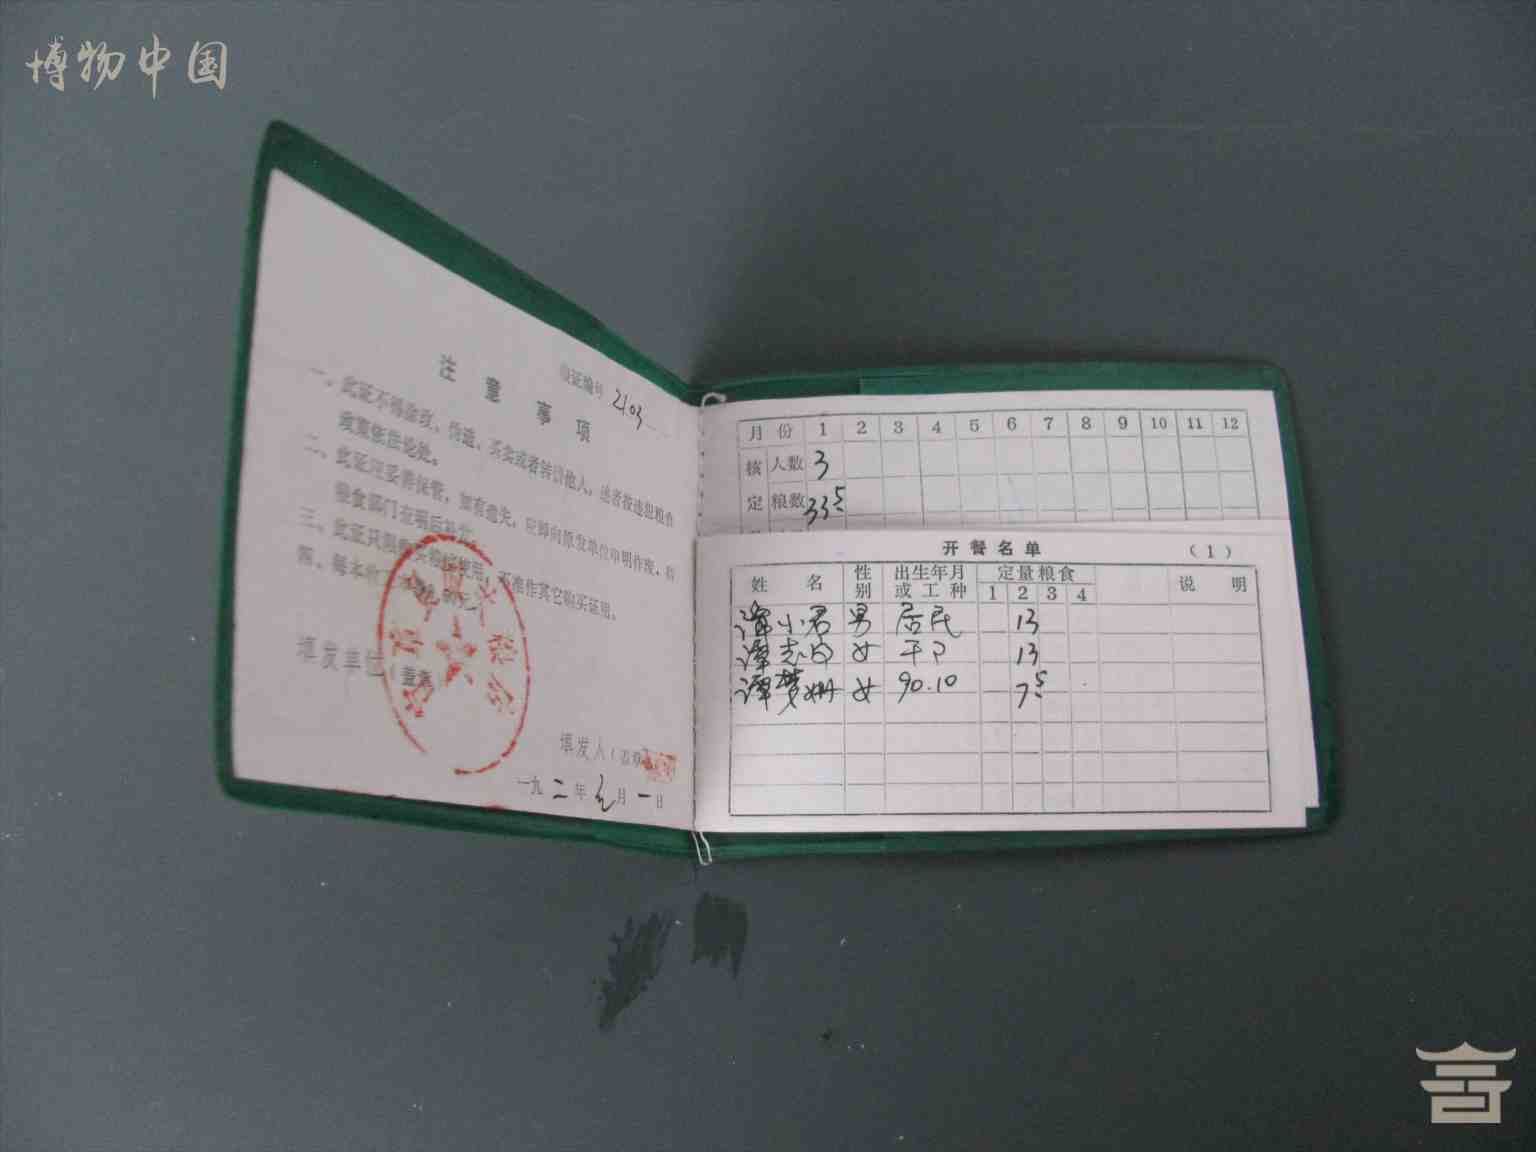 博物中国
证编号 2103
注意事项
一、此证不得涂改、伪造、买卖或者转借他人，违者按违犯粮食
政策依法论处。
二、此证应妥善保管，如有遗失，应即向原发单位申明作废，经
粮食部门查明后补发。
三、此证只限购买粮油使用，不准作其它购买证用。
四、每本收
填发单位（盖章）
填发人（盖章）
一九 二年元月一日
月份 1 2 3 4 5 6 7 8 9 10 11 12
核 人数 3
定 粮数 33.5
开餐名单 （1）
姓名 性别 出生年月或工种 定量粮食 1 2 3 4 说明
谭小君 男 居民 13
谭志 女 干 13
谭梦姗 女 90.10 7.5